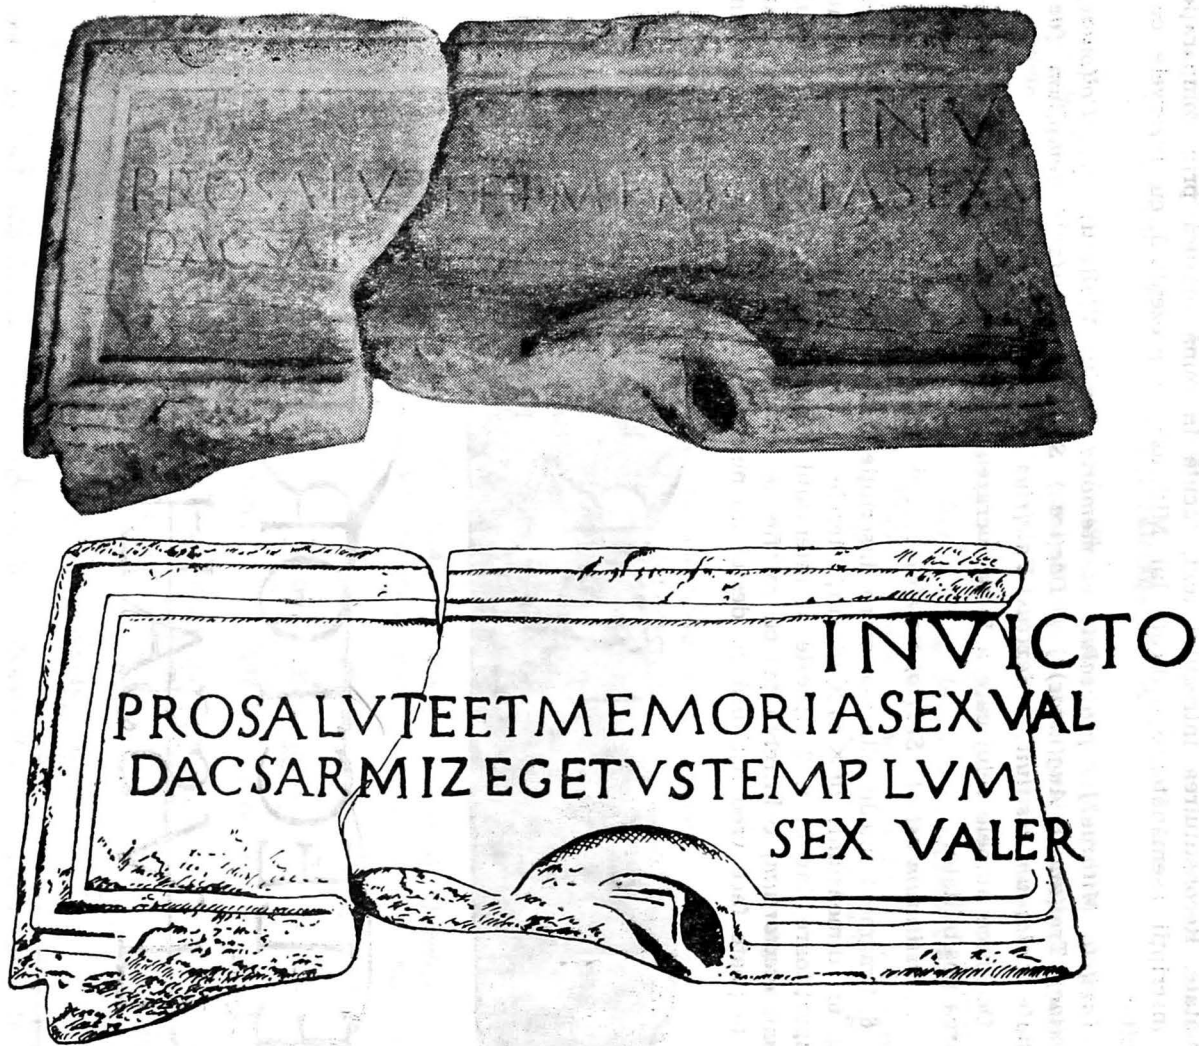 INV
PROSALV TEETMEMORIASEXV
DACSAR
INVICTO
PROSALVTEETMEMORIASEXVAL
DACSARMIZEGETVSTEMPLVM
SEX VALER